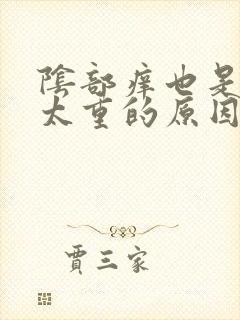 陰部痒也是
太重的原因
賈三家